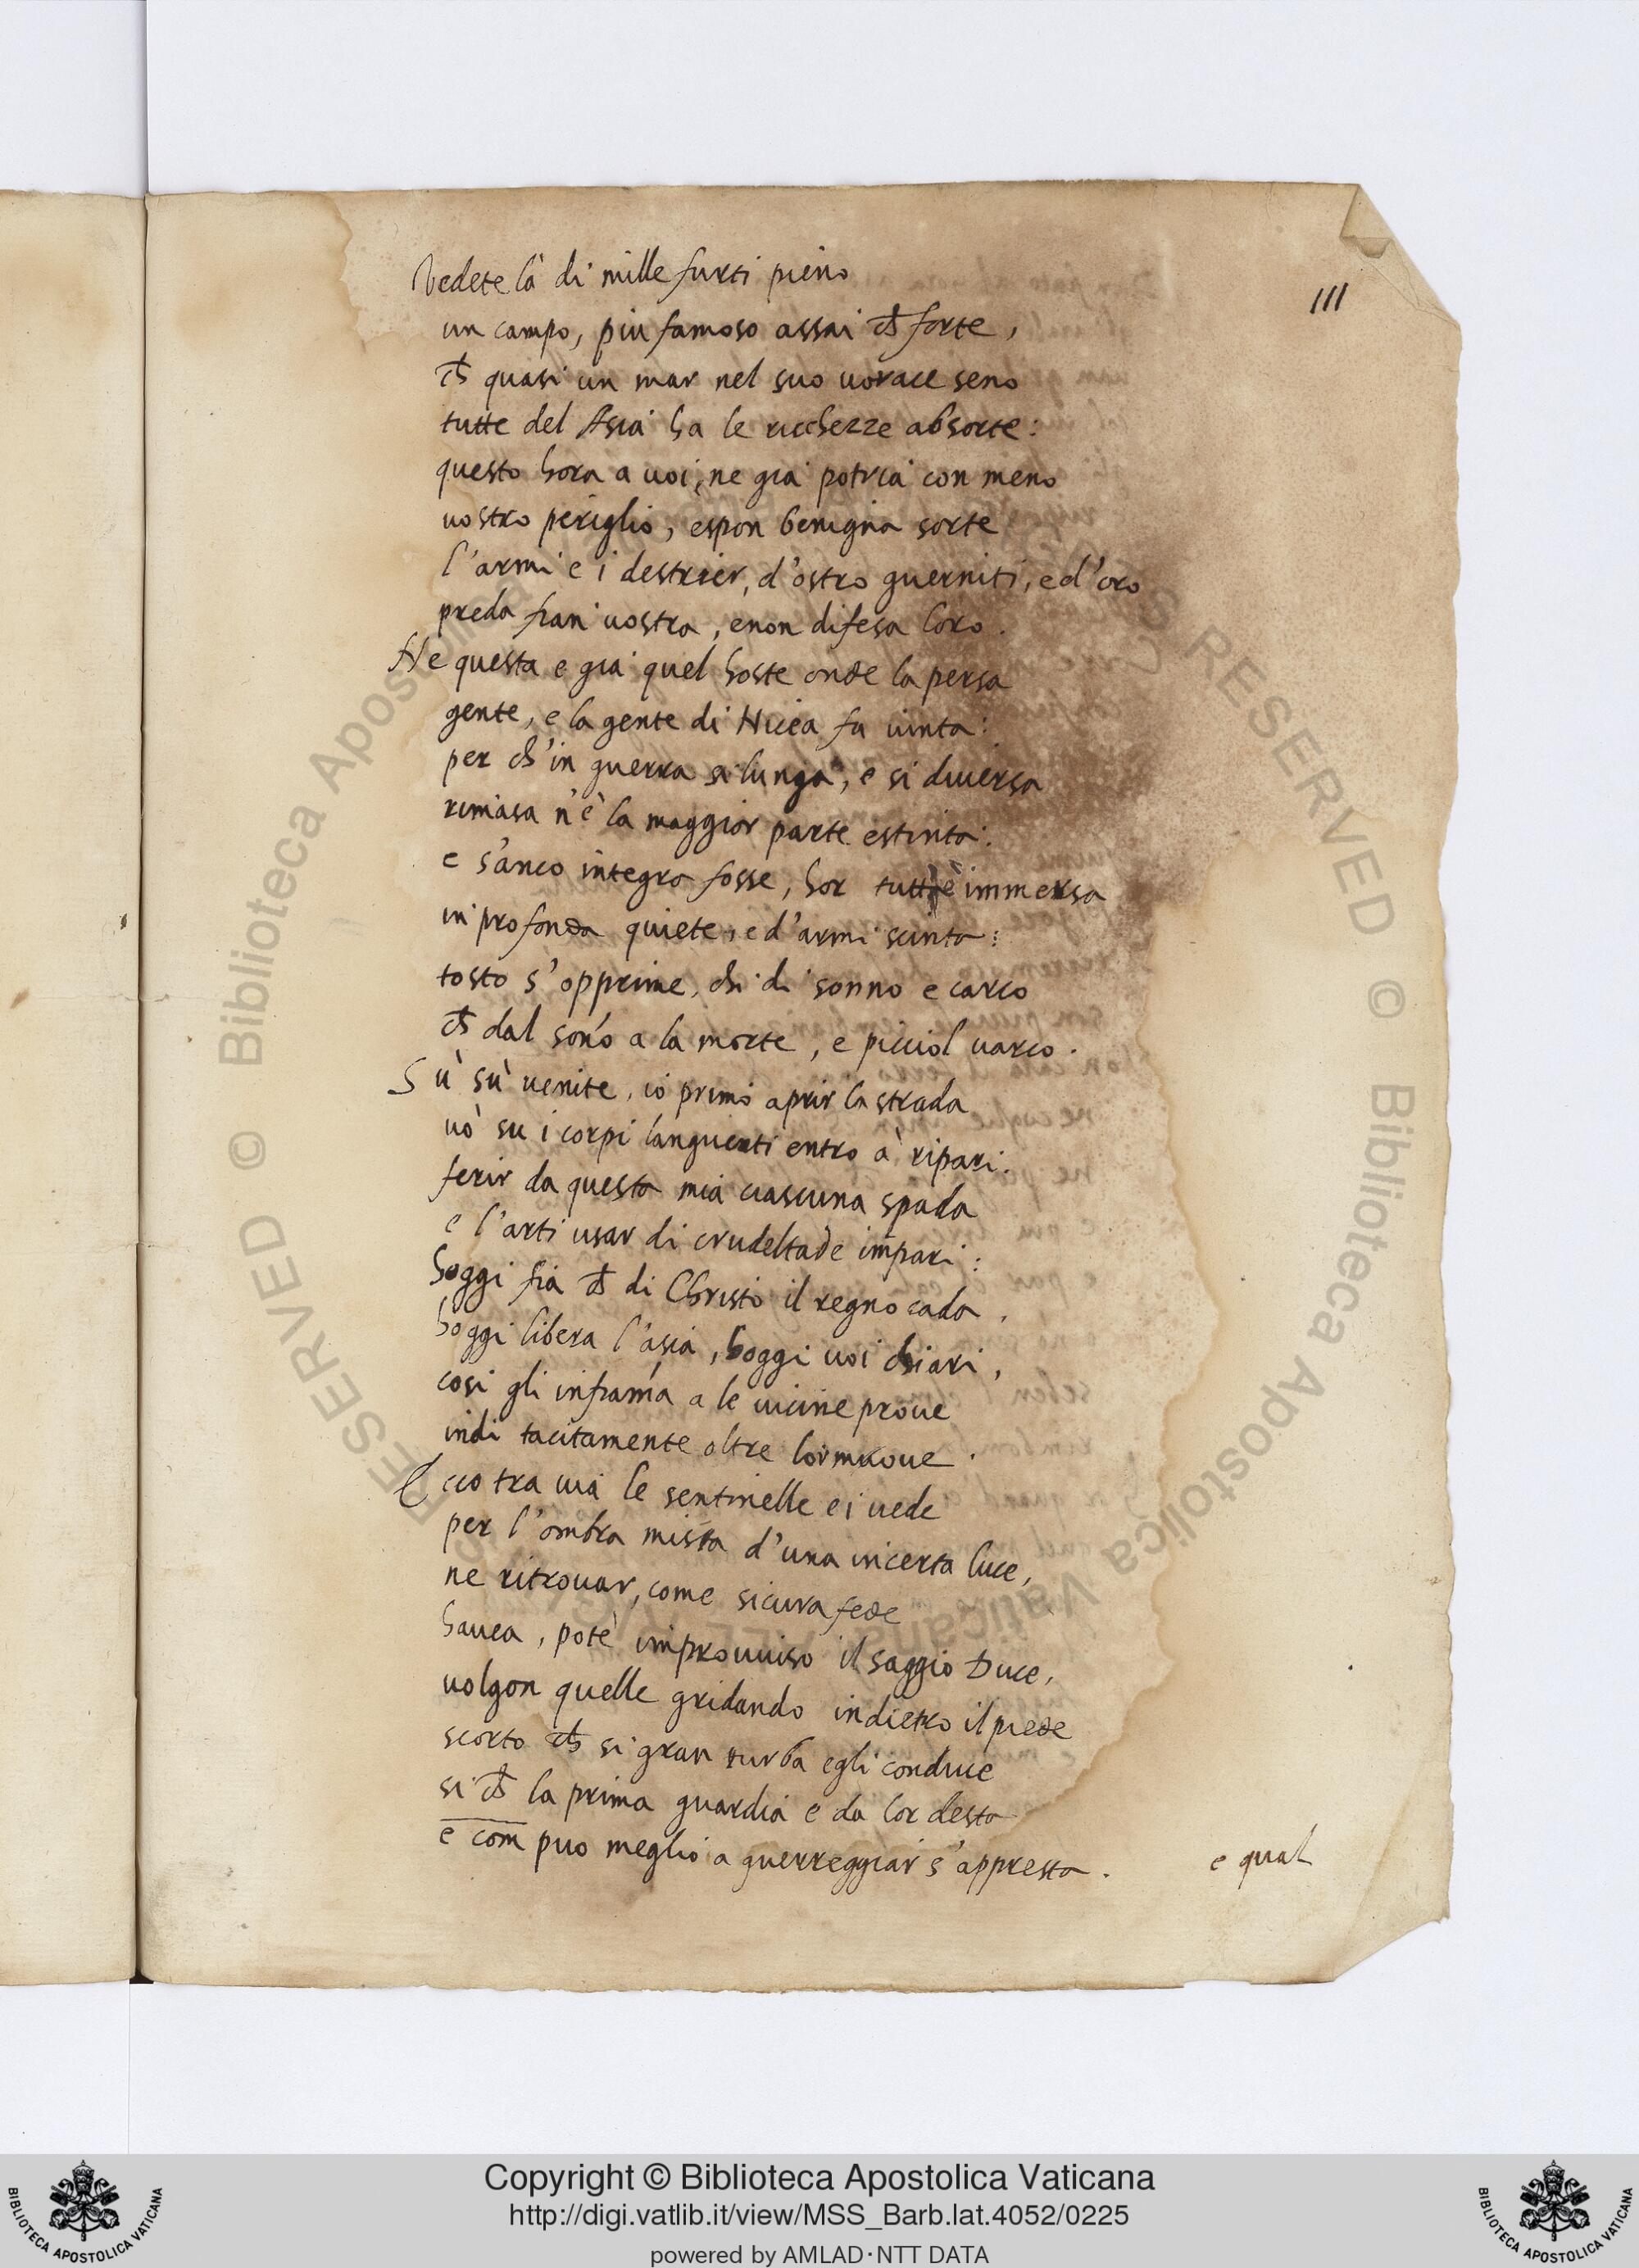 Vedete là di mille furti pieno
111
un campo, piu famoso assai ch̄ forte,
ch̄ quasi un mar nel suo uorace seno
tutte del Asia ha le ricchezze absorte:
questo hora a uoi, ne gia potria con meno
uostro periglio, espon benigna sorte
l'armi e i destrier, d'ostro guerniti, e d'oro
preda fian uostra, e non difesa loro.
Ne questa e gia quel hoste onde la persa
gente, e la gente di Nicea fu uinta:
per ch'in guerra si lunga, e si diuersa
rimasa n'è la maggior parte estinta:
e s'anco integra fosse, hor tutta è immersa
in profonda quiete, e d'armi scinta:
tosto s'opprime, chi di sonno e carco
ch̄ dal sono a la morte, e picciol uarco.
Sù sù uenite, io primo aprir la strada
uò su i corpi languenti entro à ripari.
ferir da questa mia ciascuna spada
e l'arti usar di crudeltade impari:
hoggi fia ch̄ di Christo il regno cada,
hoggi libera l'asia, hoggi uoi chiari,
cosi gli infiama a le uicine proue
indi tacitamente oltre lor muoue.
Ecco tra uia le sentinelle ei uede
per l'ombra mista d'una incerta luce,
ne ritrouar, come sicura fede
hauea, potè improuuiso il saggio Duce,
uolgon quelle gridando indietro il piede
scorto ch̄ si gran turba egli conduce
si ch̄ la prima guardia e da lor desta
e com puo meglio a guerreggiar s'appresta.
e qual
© Biblioteca Apostolica Vaticana
RESERVED
Copyright © Biblioteca Apostolica Vaticana
http://digi.vatlib.it/view/MSS_Barb.lat.4052/0225
powered by AMLAD·NTT DATA
BIBLIOTECA APOSTOLICA VATICANA
BIBLIOTECA APOSTOLICA VATICANA